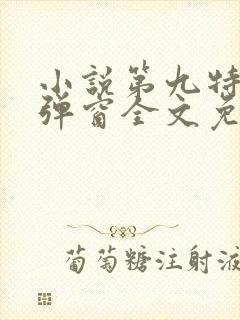 小説第九特
弹窗全文免
葡萄糖注射液